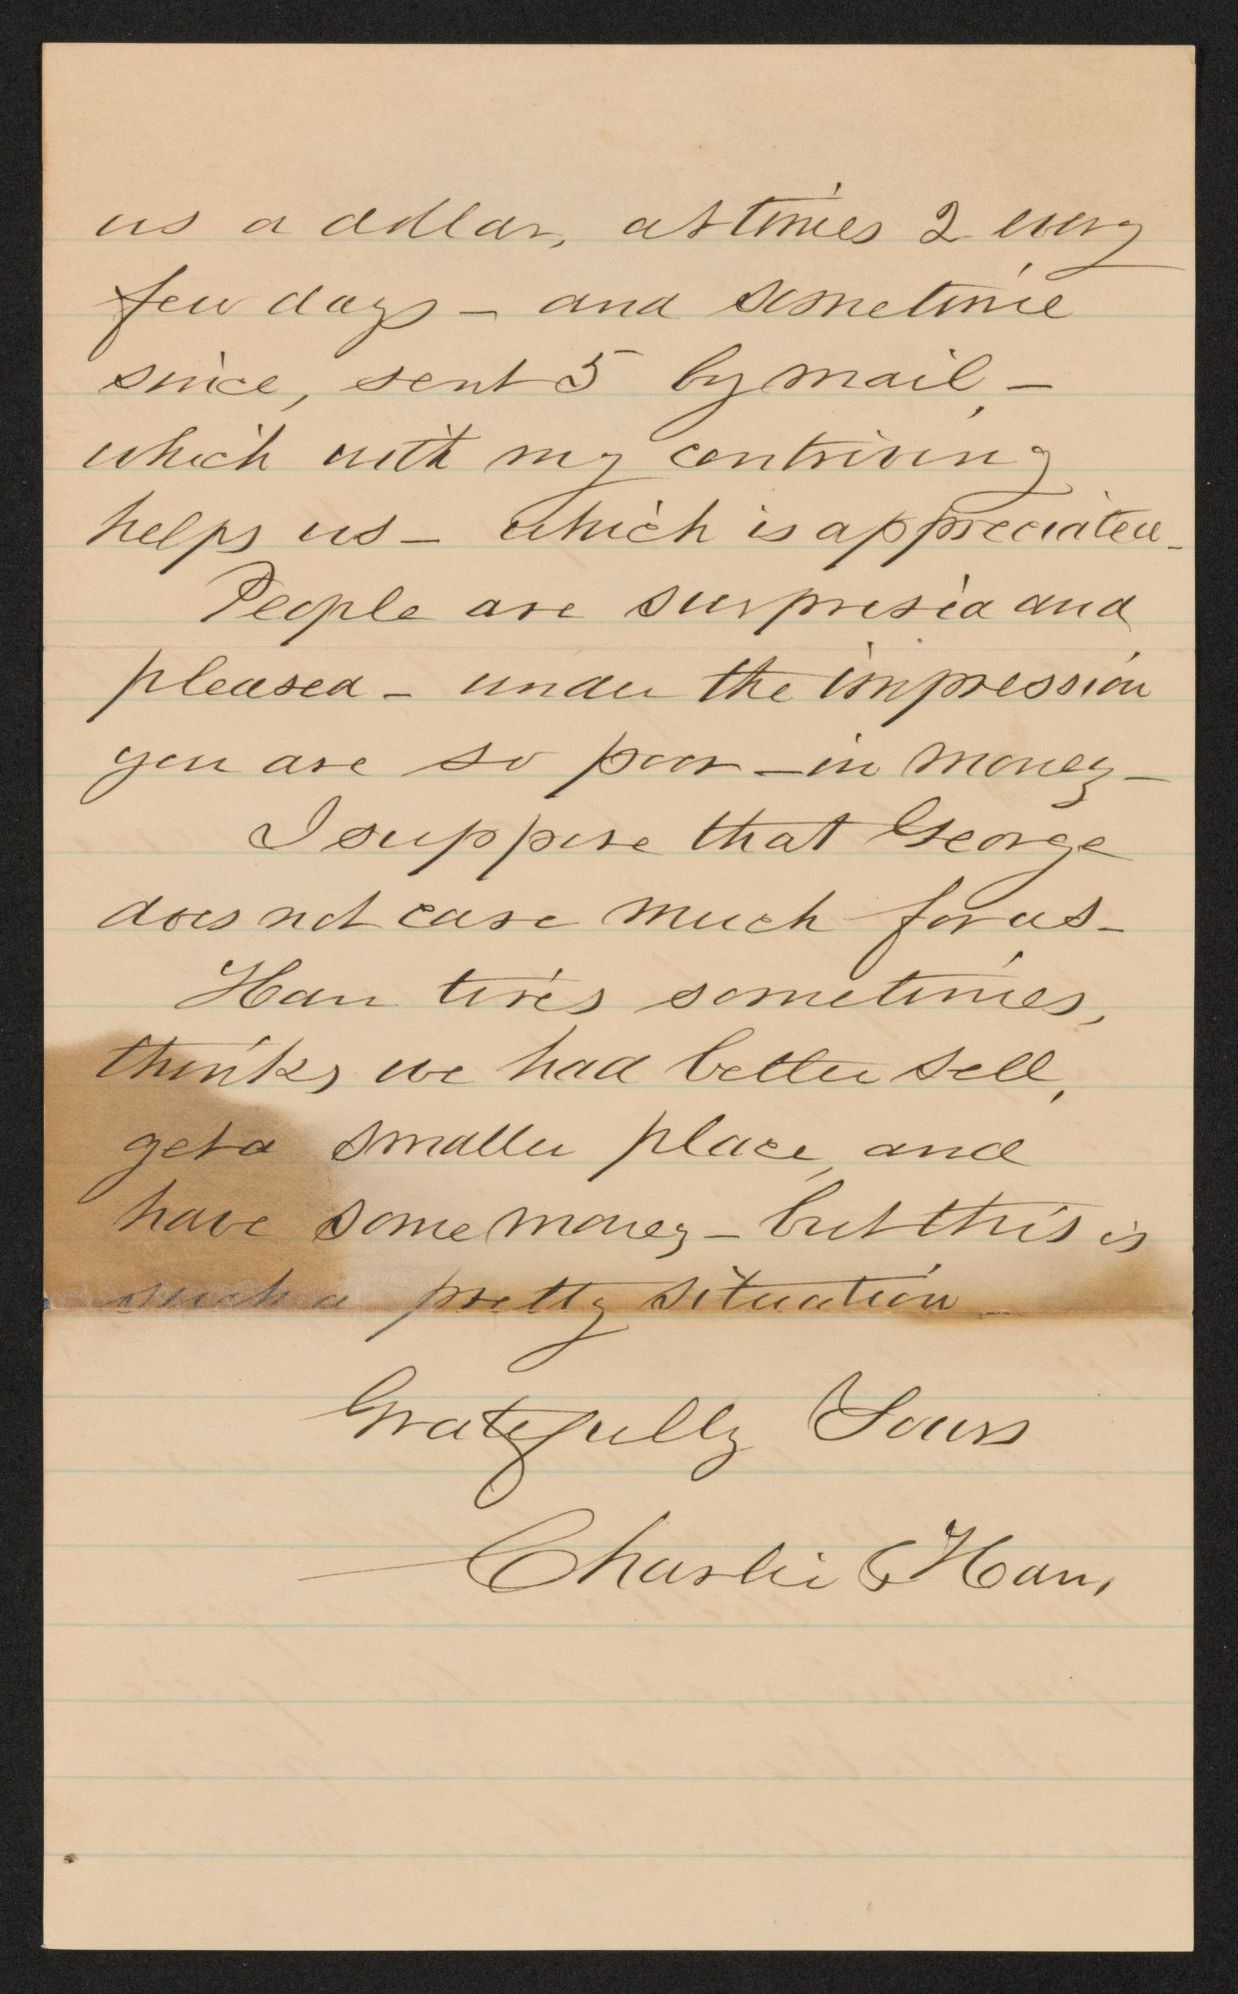 us a dollar, at times 2 every
few days - and sometime
since, sent 5 by mail, -
which with my contriving
helps us - which is appreciated -
People are surprised and
pleased - under the impression
you are so poor - in money -
I suppose that George
does not care much for us -
Han tires sometimes,
thinks we had better sell,
get a smaller place, and
have some money - but this is
such a pretty situation -
Gratefully Yours
Charlie & Han.